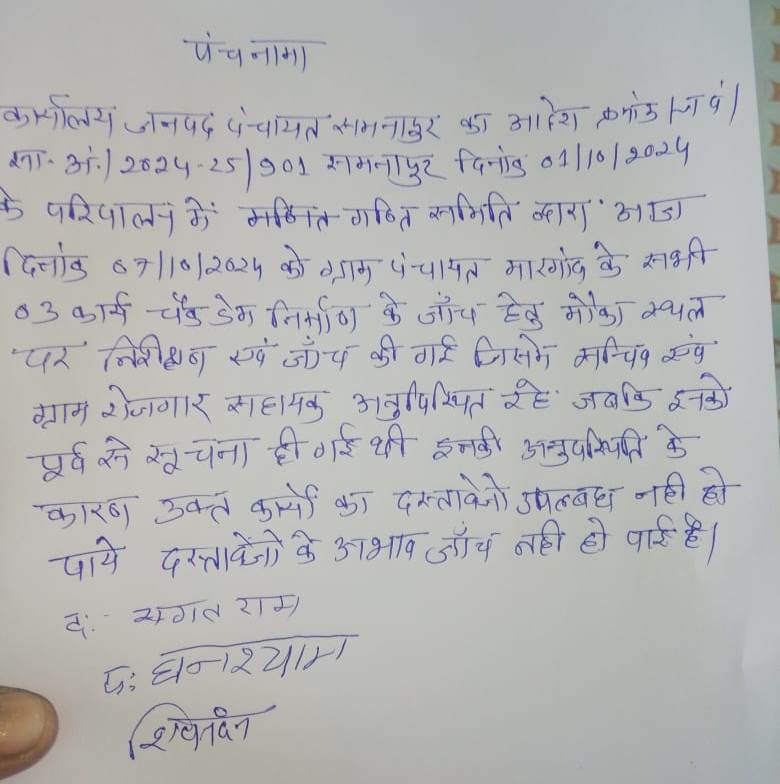 पंचनामा
कार्यालय जनपद पंचायत समनापुर का आदेश क्रमांक /ज पं/
स्था. अं./2024-25/901 समनापुर दिनांक 01/10/2024
के परिपालन में गठित समिति द्वारा आज
दिनांक 07/10/2024 को ग्राम पंचायत मारगांव के सभी
03 कार्य चैक डेम निर्माण के जाँच हेतु मौका स्थल
पर निरीक्षण एवं जाँच की गई जिसमे सचिव एवं
ग्राम रोजगार सहायक अनुपिस्थित रहे जबकि इनको
पूर्व से सूचना दी गई थी इनकी अनुपस्थिति के
कारण उक्त कार्यो का दस्तावेजो उपलबध नही हो
पाये दस्तावेजो के अभाव जाँच नही हो पाई है।
द:- भगत राम
द: घनश्याम